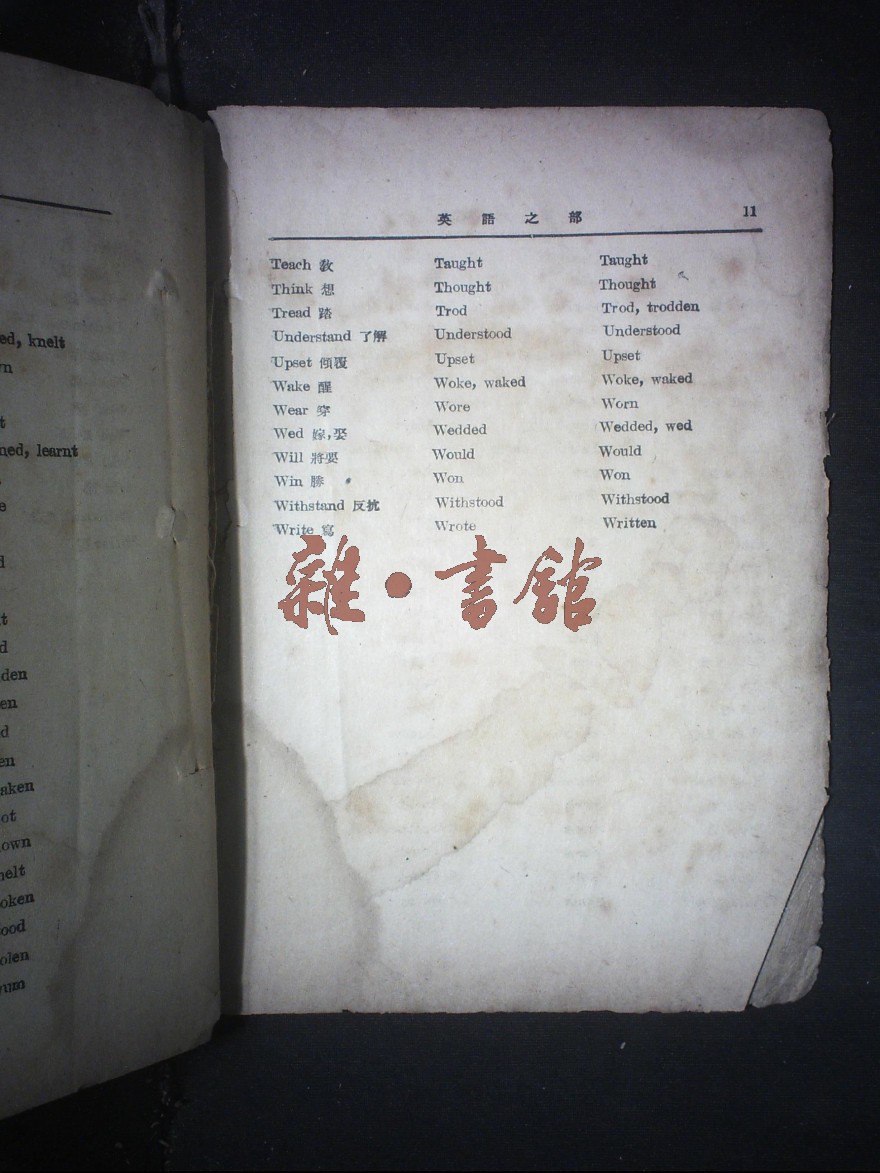 ed, knelt
n
t
ned, learnt
e
d
t
d
den
en
d
en
aken
ot
own
nelt
oken
ood
olen
um
英語之部 11
Teach 敎 Taught Taught
Think 想 Thought Thought
Tread 踏 Trod Trod, trodden
Understand 了解 Understood Understood
Upset 傾覆 Upset Upset
Wake 醒 Woke, waked Woke, waked
Wear 穿 Wore Worn
Wed 嫁,娶 Wedded Wedded, wed
Will 將要 Would Would
Win 勝 Won Won
Withstand 反抗 Withstood Withstood
Write 寫 Wrote Written
雜·書館